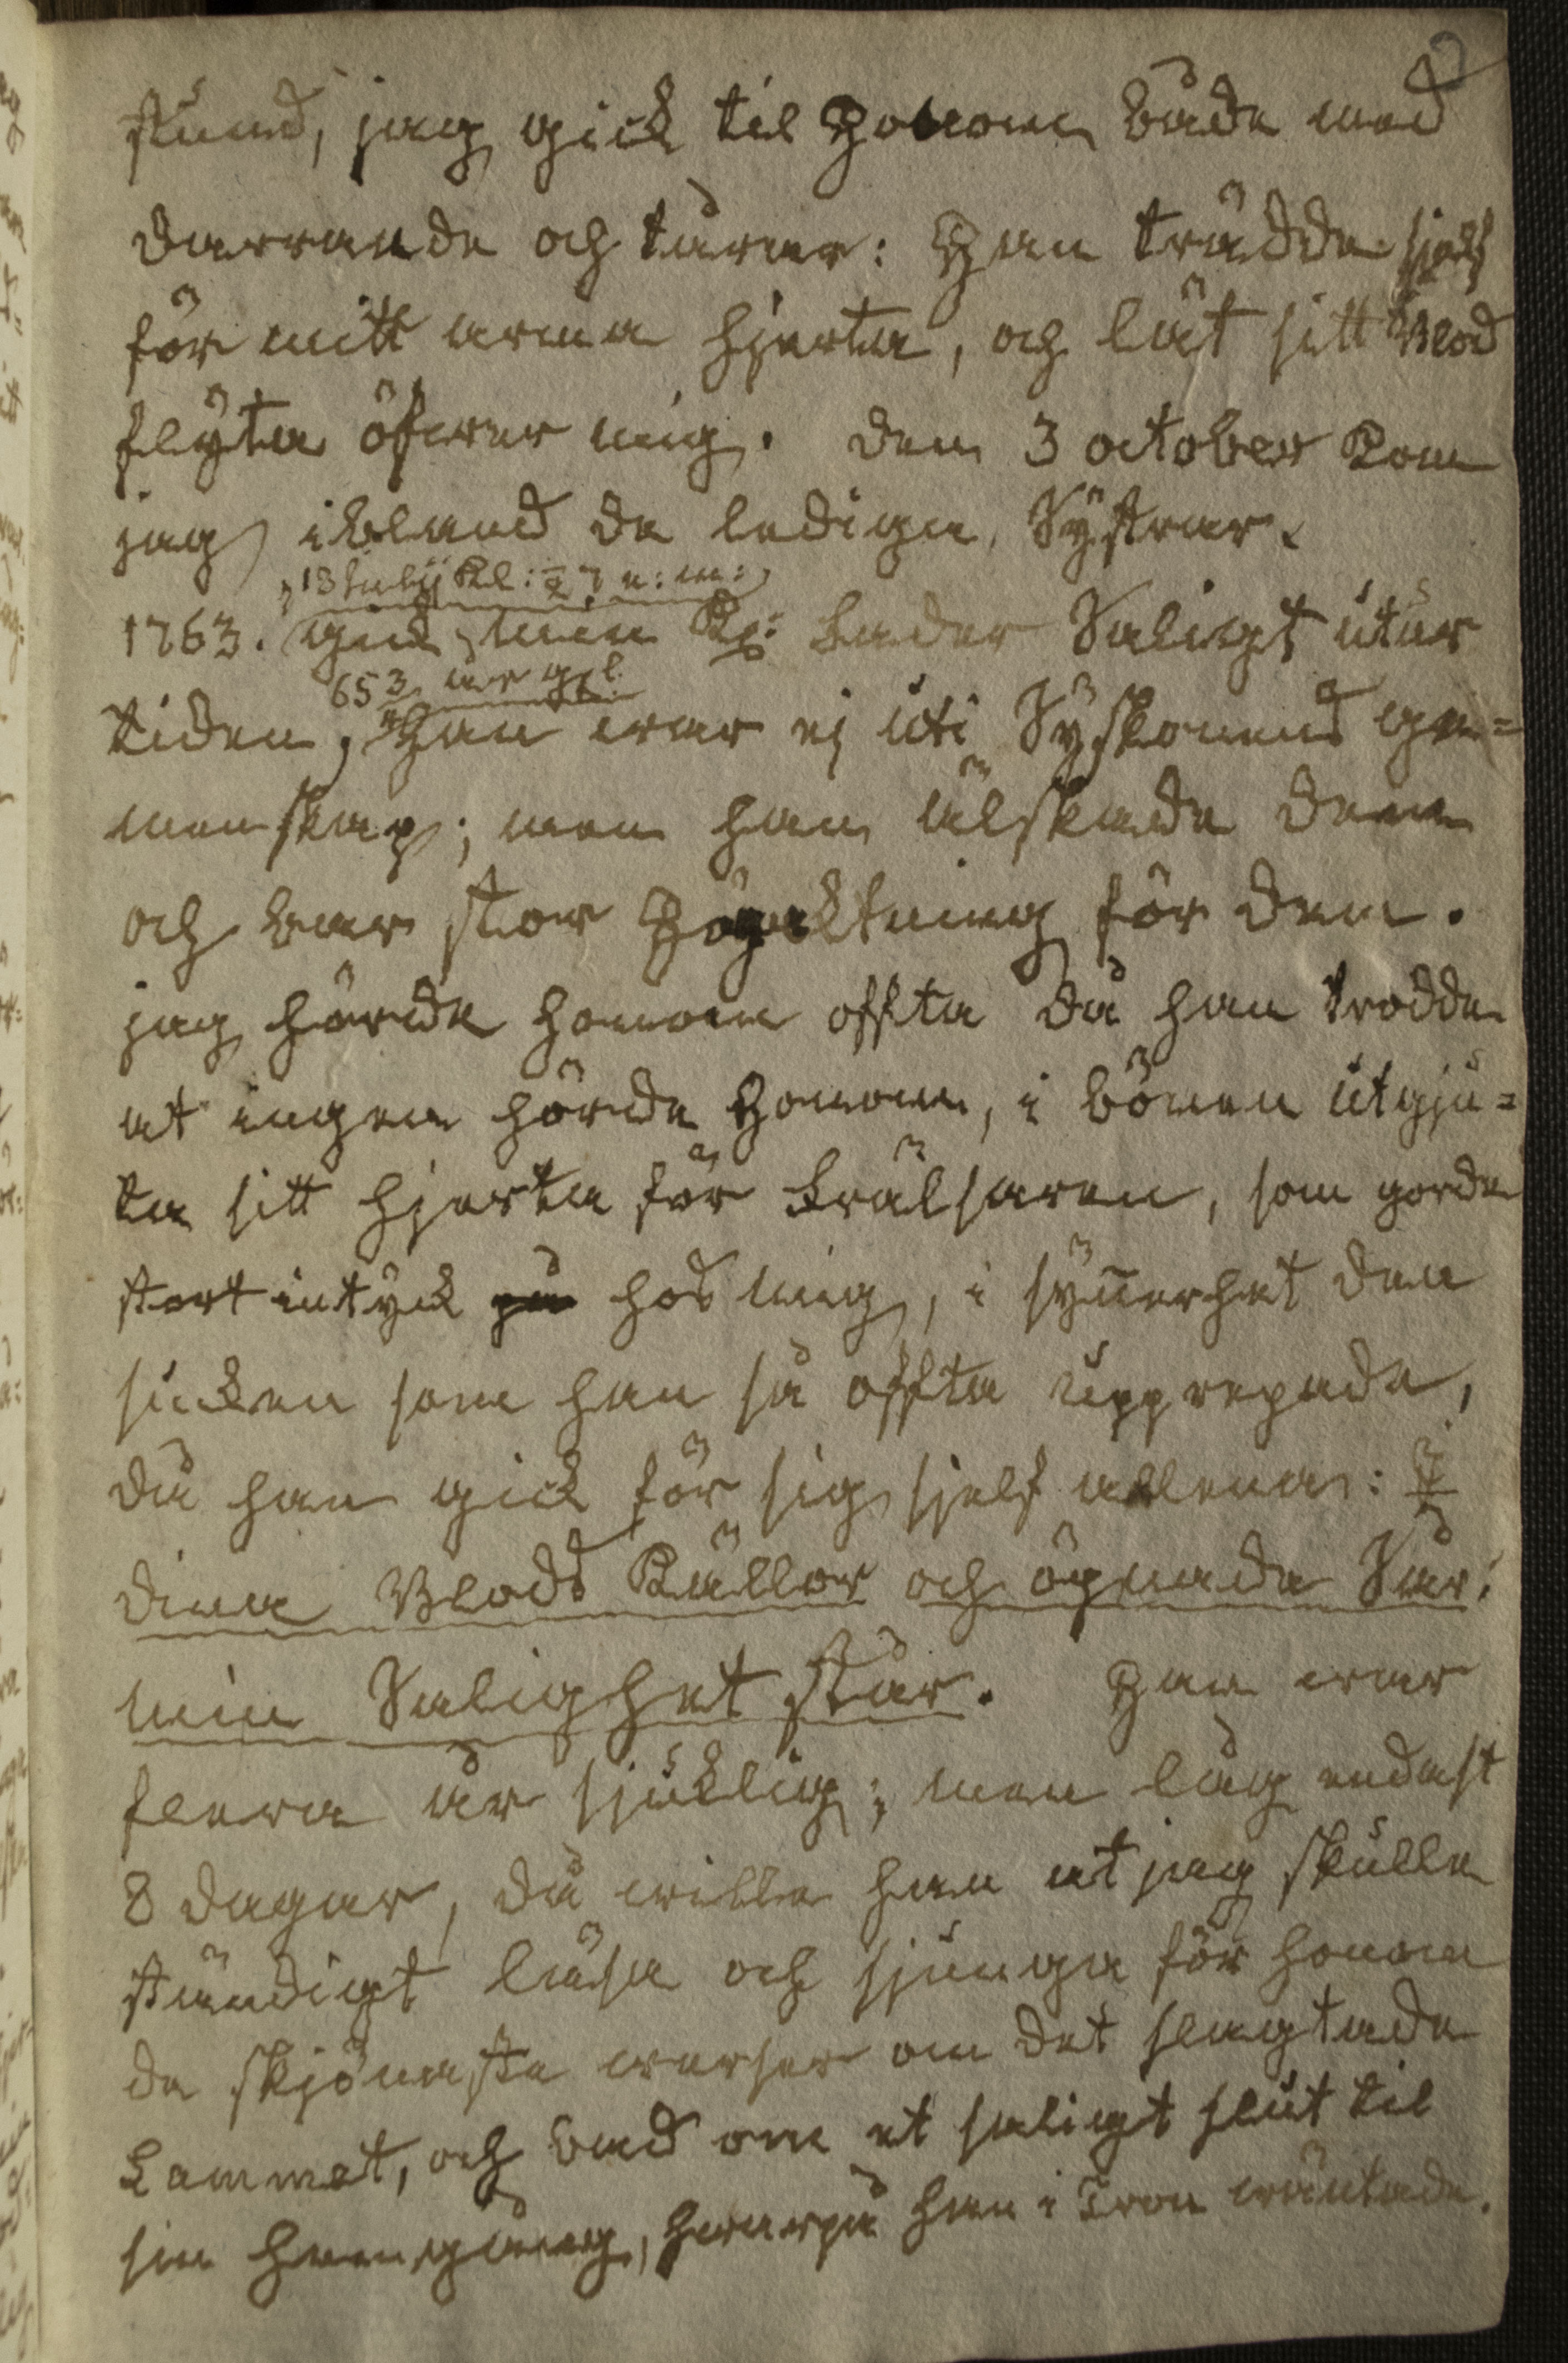 stund, jag gick til Honom både med
darrande och tårar: Han trädde sjelf
för mitt arma hjerta, och lät sitt Blod
flyta öfwer mig. den 3 october kom
jag ibland de lediga Systrar.
13 July Kl: ½ 7 e: m:
1763. gick min K: Fader Saligt utur
65¾ år gl.
tiden, Han war ej uti Syskonens ge=
menskap; men han älskade dem
och bar stor Högaktning för dem.
jag hörde honom offta då han trodde
at ingen hörde Honom, i bönen utgju=
ta sitt hjerta för Frälsaren, som gorde
stort intyck på hos mig, i syn̄erhet den
sucken som han så offta upprepade,
då han gick för sig sjelf allena: I
dina Blods Källor och öpnade Sår:
min Salighet står. Han war
flera år sjuklig; men låg endast
8 dagar, då wille han at jag skulle
ständigt läsa och sjunga för honom
de skjönaste werser om det slagtade
Lammet, och bad om et saligt slut til
sin hemgång, hwarpå han i Tron wäntade.